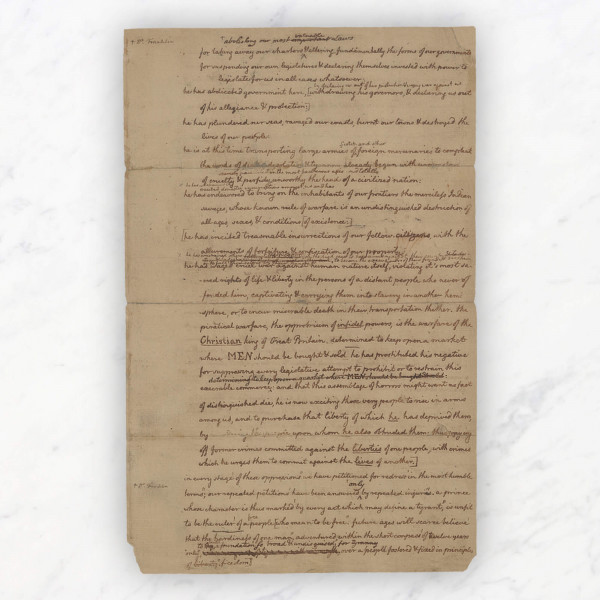 * Dr. Franklin
valuable
abolishing our most important Laws
for taking away our charters & altering fundamentally the forms of our governments
for suspending our own legislatures & declaring themselves invested with power to
legislate for us in all cases whatsoever
he has abdicated government here, [withdrawing his governors, & declaring us out
of his allegiance & protection:]
he has plundered our seas, ravaged our coasts, burnt our towns & destroyed the
lives of our people:
he is at this time transporting large armies of foreign mercenaries to compleat
the works of death desolation & tyranny already begun with circumstances
of cruelty & perfidy unworthy the head of a civilized nation:
he has endeavored to bring on the inhabitants of our frontiers the merciless Indian
savages, whose known rule of warfare is an undistinguished destruction of
all ages, sexes, & conditions [of existence:]
[he has incited treasonable insurrections of our fellow citizens with the
allurements of forfeiture & confiscation of our property:
he has waged cruel war against human nature itself, violating it's most sa-
-cred rights of life & liberty in the persons of a distant people who never of
fended him, captivating & carrying them into slavery in another hemi-
sphere, or to incur miserable death in their transportation thither. this
piratical warfare, the opprobrium of infidel powers, is the warfare of the
Christian king of Great Britain. determined to keep open a market
where MEN should be bought & sold he has prostituted his negative
for suppressing every legislative attempt to prohibit or to restrain this
determining to keep open a market where MEN should be bought & sold
execrable commerce: and that this assemblage of horrors might want no fact
of distinguished die, he is now exciting those very people to rise in arms
among us, and to purchase that liberty of which he has deprived them,
by murdering the people upon whom he also obtruded them: thus paying
off former crimes committed against the liberties of one people, with crimes
which he urges them to commit against the lives of another.]
in every stage of these oppressions we have petitioned for redress in the most humble
only
* Dr. Franklin
terms; our repeated petitions have been answered by repeated injuries. a prince
whose character is thus marked by every act which may define a tyrant, is unfit
free
to be the ruler of a people [who mean to be free. future ages will scarce believe
that the hardiness of one man, adventured within the short compass of twelve years
to lay a foundation so broad & undisguised, for tyranny
only, over a people fostered & fixed in principles
of liberty freedom.]